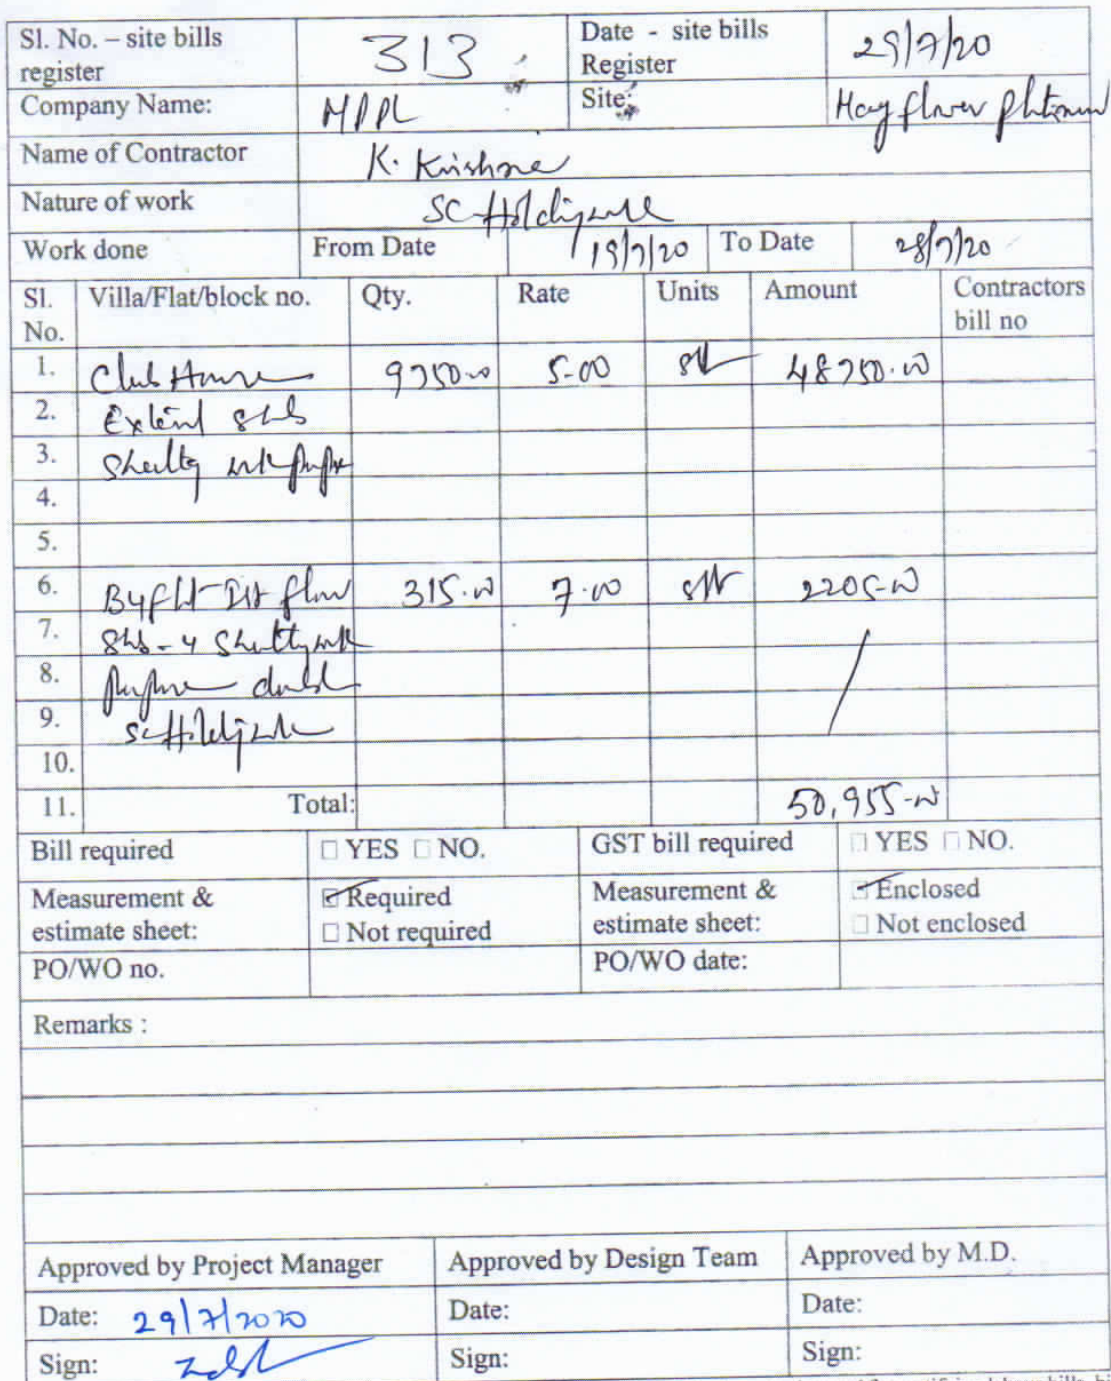 Sl. No. – site bills register 313 Date - site bills Register 29/7/20
Company Name: MPPL Site: Mayflower Platinum
Name of Contractor K. Krishna
Nature of work
Work done From Date 19/7/20 To Date 28/7/20
Sl. No. Villa/Flat/block no. Qty. Rate Units Amount Contractors bill no
1. Club House 9750.00 5-00 sft 48750.00
2. Extent slab
3.
4.
5.
6. 315.00 7.00 sft 2205-00
7. Slab-4
8.
9.
10.
11. Total: 50,955-00
Bill required □ YES □ NO. GST bill required □ YES □ NO.
Measurement & estimate sheet: ☑ Required Measurement & estimate sheet: ☑ Enclosed
□ Not required □ Not enclosed
PO/WO no. PO/WO date:
Remarks :
Approved by Project Manager Approved by Design Team Approved by M.D.
Date: 29/7/2020 Date: Date:
Sign: Sign: Sign: